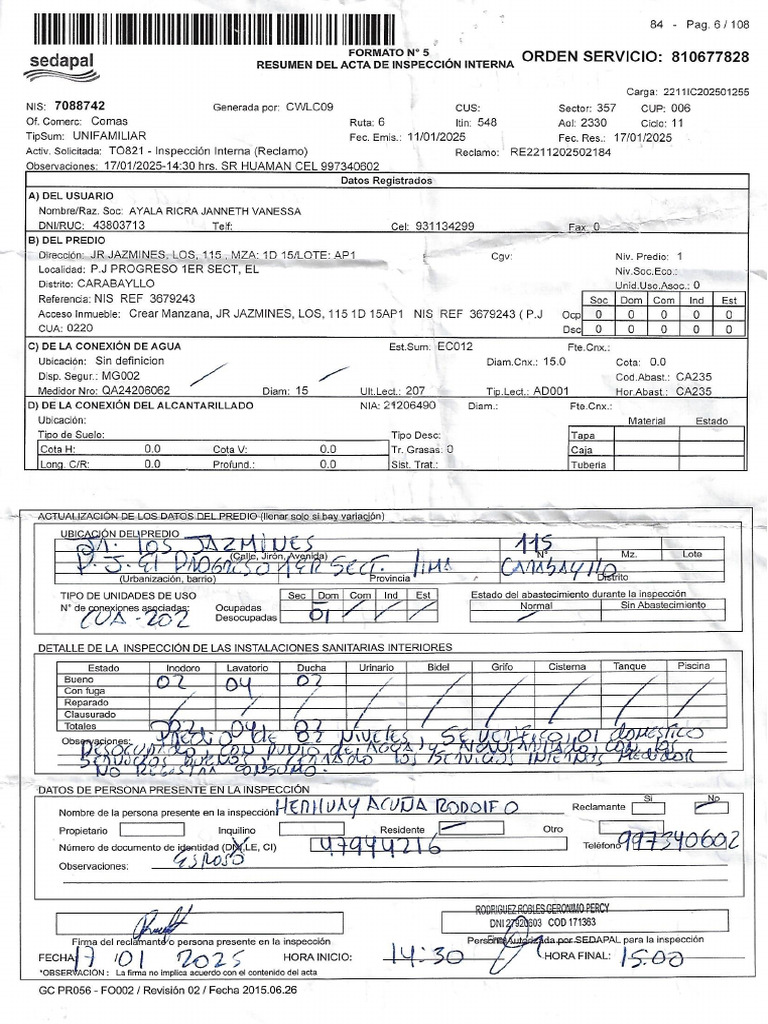 84 - Pag. 6 / 108
sedapal
FORMATO N° 5
RESUMEN DEL ACTA DE INSPECCIÓN INTERNA
ORDEN SERVICIO: 810677828
Carga: 2211IC202501255
NIS: 7088742 Generada por: CWLC09 CUS: Sector: 357 CUP: 006
Of. Comerc: Comas Ruta: 6 Itin: 548 Aol: 2330 Ciclo: 11
TipSum: UNIFAMILIAR Fec. Emis.: 11/01/2025 Fec. Res.: 17/01/2025
Activ. Solicitada: TO821 - Inspección Interna (Reclamo) Reclamo: RE2211202502184
Observaciones: 17/01/2025-14:30 hrs. SR HUAMAN CEL 997340602
Datos Registrados
A) DEL USUARIO
Nombre/Raz. Soc: AYALA RICRA JANNETH VANESSA
DNI/RUC: 43803713 Telf: Cel: 931134299 Fax: 0
B) DEL PREDIO
Dirección: JR JAZMINES, LOS, 115 , MZA: 1D 15/LOTE: AP1 Cgv: Niv. Predio: 1
Localidad: P.J PROGRESO 1ER SECT, EL Niv.Soc.Eco.:
Distrito: CARABAYLLO Unid.Uso.Asoc.: 0
Referencia: NIS REF 3679243 Soc Dom Com Ind Est
Acceso Inmueble: Crear Manzana, JR JAZMINES, LOS, 115 1D 15AP1 NIS REF 3679243 ( P.J Ocp 0 0 0 0 0
CUA: 0220 Dsc 0 0 0 0 0
C) DE LA CONEXIÓN DE AGUA Est.Sum: EC012 Fte.Cnx.:
Ubicación: Sin definicion Diam.Cnx.: 15.0 Cota: 0.0
Disp. Segur.: MG002 Cod.Abast.: CA235
Medidor Nro: QA24206062 Diam: 15 Ult.Lect.: 207 Tip.Lect.: AD001 Hor.Abast.: CA235
D) DE LA CONEXIÓN DEL ALCANTARILLADO NIA: 21206490 Diam.: Fte.Cnx.:
Ubicación: Material Estado
Tipo de Suelo: Tipo Desc: Tapa
Cota H: 0.0 Cota V: 0.0 Tr. Grasas: 0 Caja
Long. C/R: 0.0 Profund.: 0.0 Sist. Trat.: Tuberia
ACTUALIZACIÓN DE LOS DATOS DEL PREDIO (llenar solo si hay variación)
UBICACIÓN DEL PREDIO
Jr. los JAZMINES 115
(Calle, Jirón, Avenida) N° Mz. Lote
P. J. El PROGRESO 1ER SECT. lima CARABAYllO
(Urbanización, barrio) Provincia Distrito
TIPO DE UNIDADES DE USO Sec Dom Com Ind Est Estado del abastecimiento durante la inspección
N° de conexiones asociadas: Ocupadas Normal Sin Abastecimiento
CUA-202 Desocupadas 01
DETALLE DE LA INSPECCIÓN DE LAS INSTALACIONES SANITARIAS INTERIORES
Estado Inodoro Lavatorio Ducha Urinario Bidel Grifo Cisterna Tanque Piscina
Bueno 02 04 02
Con fuga
Reparado
Clausurado
Totales 02 04 02
Observaciones: PREDIO DE 03 NIVELES, SE VERIFICO, 01 DOMESTICO
DESOCUPADO, CON PUNTO DE AGUA, Y CON LOS
SERVICIOS BUENOS, CERRADO LOS SERVICIOS INTERNOS MEDIDOR
NO REGISTRA CONSUMO.
DATOS DE PERSONA PRESENTE EN LA INSPECCIÓN
Nombre de la persona presente en la inspección HERHUAY ACUÑA RODOLFO Reclamante Si No
Propietario Inquilino Residente Otro
Número de documento de identidad (DNI, LE, CI) 47944216 Teléfono 997340602
Observaciones: ESPOSO
RODRIGUEZ ROBLES GERONIMO PERCY
DNI 27920603 COD 171363
Firma del reclamante/o persona presente en la inspección Persona Autorizada por SEDAPAL para la inspección
FECHA 17 01 2025 HORA INICIO: 14:30 HORA FINAL: 15:00
*OBSERVACIÓN : La firma no implica acuerdo con el contenido del acta
GC PR056 - FO002 / Revisión 02 / Fecha 2015.06.26